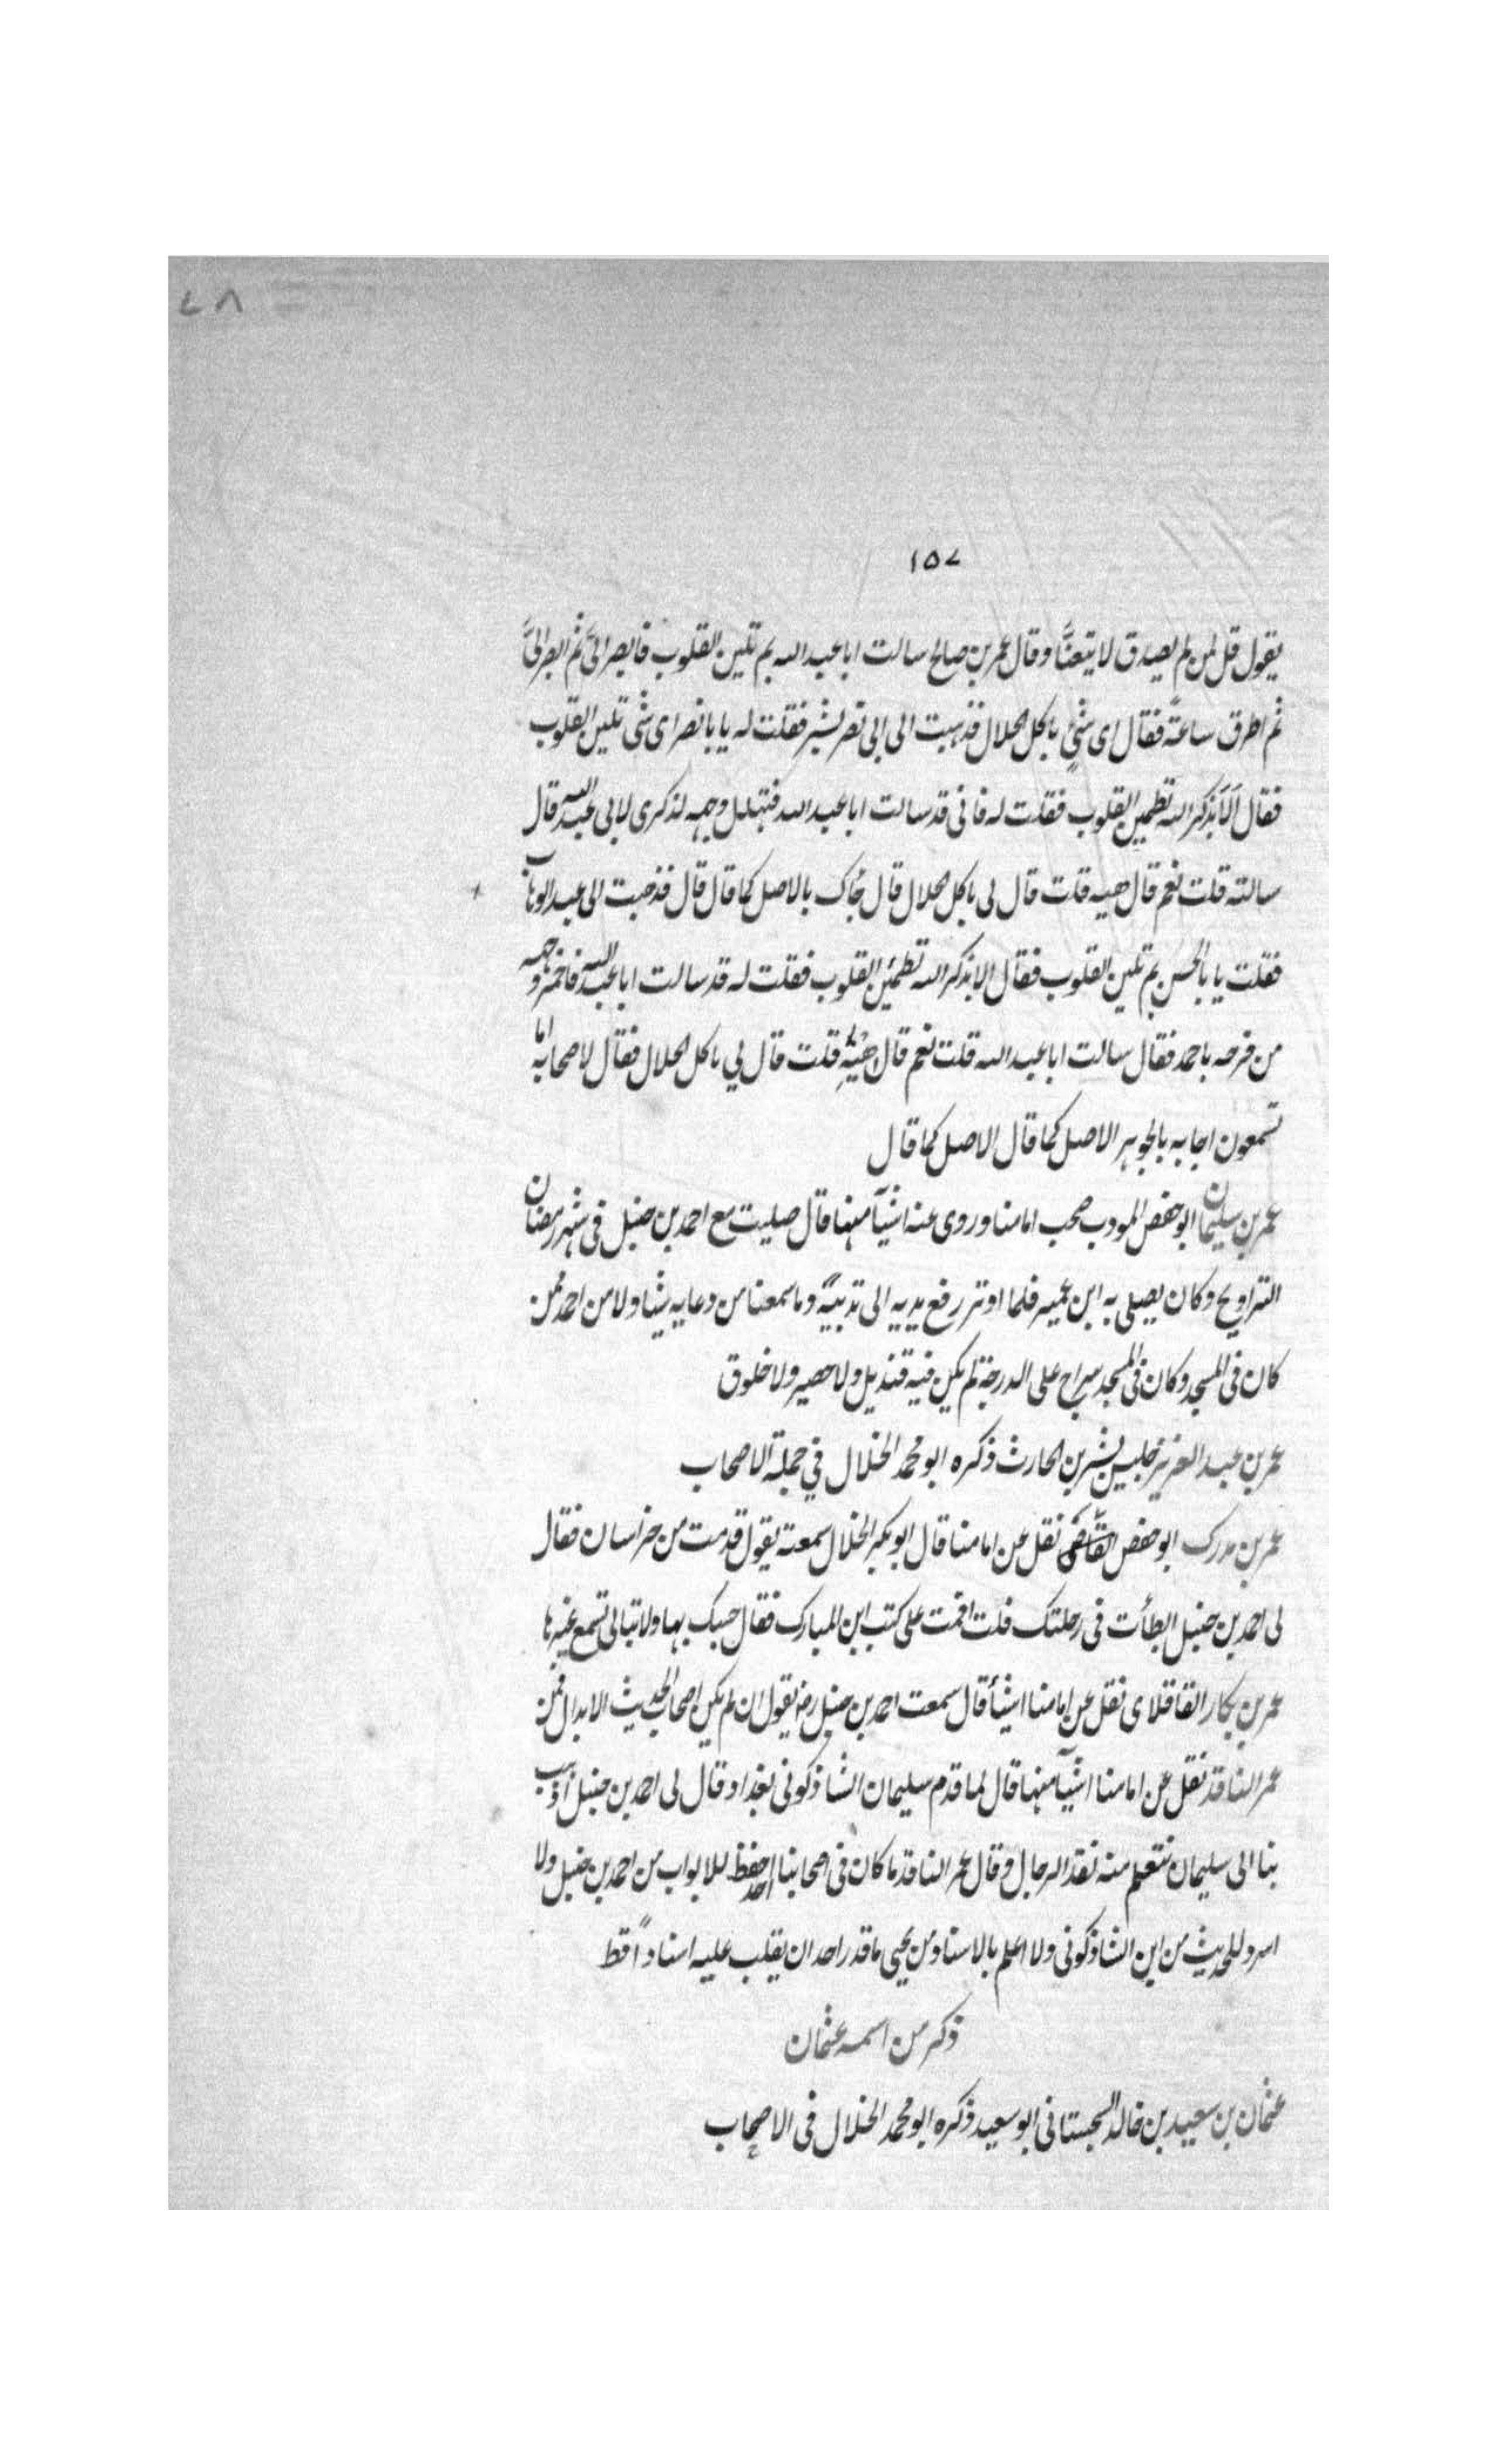 ٧٨
١٥٧
يقول قل لمن لم يصدق لا يتعنَّا وقال عمر بن صالح سالت ابا عبد الله بم تلين القلوب فابصر اليَّ ثم ابصر اليَّ
ثم اطرق ساعةً فقال اى شئٍ باكل الحلال فذهبت الى ابى نصر بشر فقلت له يا با نصر اى شئ تلين القلوب
فقال اَلَا بذكر الله تطمين القلوب فقلت له فانى قد سالت ابا عبد الله فتهلل وجهه لذكرى لابى عبد الله قال
سالته قلت نعم قال هيه قلت قال لى باكل الحلال قال جاك بالاصل كما قال قال فذهبت الى عبد الوهاب
فقلت يا با الحسن بم تلين القلوب فقال الا بذكر الله تطمئن القلوب فقلت له قد سالت ابا عبد الله فاحمر وجهه
من فرحه باحمد فقال سالت ابا عبد الله قلت نعم قال هيه قلت قال لي باكل الحلال فقال لاصحابه اما
تسمعون اجابه بالجوهر الاصل كما قال الاصل كما قال
عمر بن سليمان ابو حفص المودب صحب امامنا وروى عنه اشيآ منها قال صليت مع احمد بن حنبل فى شهر رمضان
التراويح وكان يصلى به ابن عمير فلما اوتر رفع يديه الى ثدييه وما سمعنا من دعايه شيئا ولا من احد ممن
كان فى المسجد وكان فى المسجد سراج على الدرجة لم يكن فيه قنديل ولا حصير ولا خلوق
عمر بن عبد العزيز جليس بشر بن الحارث ذكره ابو محمد الخلال في جملة الاصحاب
عمر بن مدرك ابو حفص القاضى نقل عن امامنا قال ابو بكر الخلال سمعته يقول قدمت من خراسان فقال
لى احمد بن حنبل ابطأت فى رحلتك قلت اقمت على كتب ابن المبارك فقال حسبك بها ولا تبالى تسمع غيرها
عمر بن بكار القاقلاى نقل عن امامنا اشيأ قال سمعت احمد بن حنبل رضه يقول ان لم يكن اصحاب الحديث الابدال فمن
عمر الناقد نقل عن امامنا اشيآ منها قال لما قدم سليمان الشاذكونى بغداد قال لى احمد بن حنبل اذهب
بنا الى سليمان نتعلم منه نقد الرجال وقال عمر الناقد ما كان فى اصحابنا احد احفظ للابواب من احمد بن حنبل ولا
اسرد للحديث من ابن الشاذكونى ولا اعلم بالاسناد من يحيى ما قدر احد ان يقلب عليه اسناداً قط
ذكر من اسمه عثمان
عثمان بن سعيد بن خالد السجستانى ابو سعيد ذكره ابو محمد الخلال فى الاصحاب